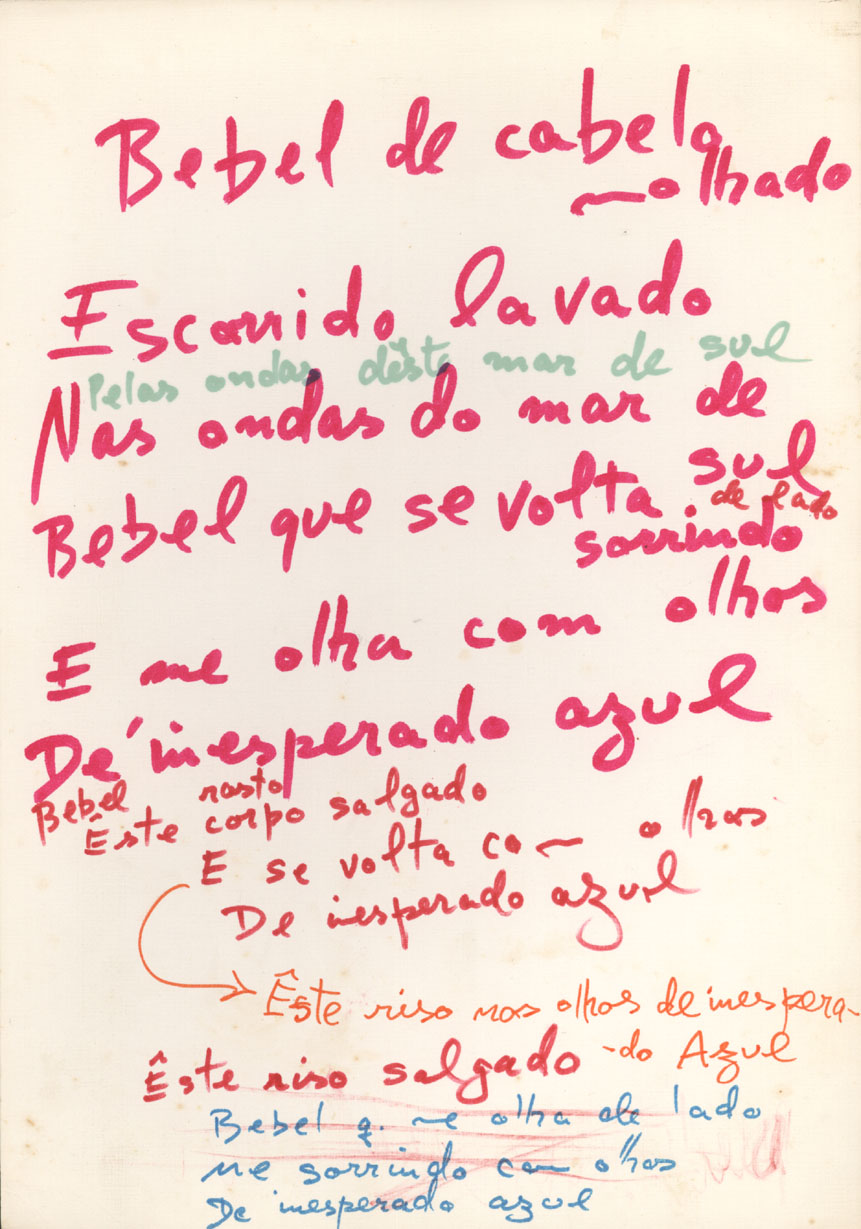 Bebel de cabelo
molhado
Escorrido lavado
Pelas ondas dêste mar de sul
Nas ondas do mar de
sul
Bebel que se volta de lado
sorrindo
E me olha com olhos
De inesperado azul
Bebel rosto
Êste corpo salgado
E se volta com olhos
De inesperado azul
Êste riso nos olhos de inespera-
-do Azul
Êste riso salgado
Bebel q. me olha de lado
me sorrindo com olhos
De inesperado azul